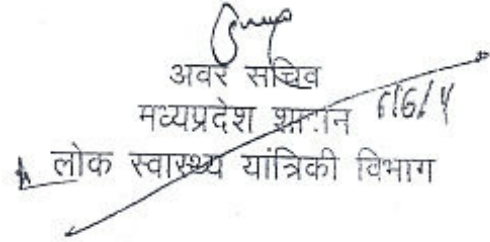 अवर सचिव
मध्यप्रदेश शासन
लोक स्वास्थ्य यांत्रिकी विभाग